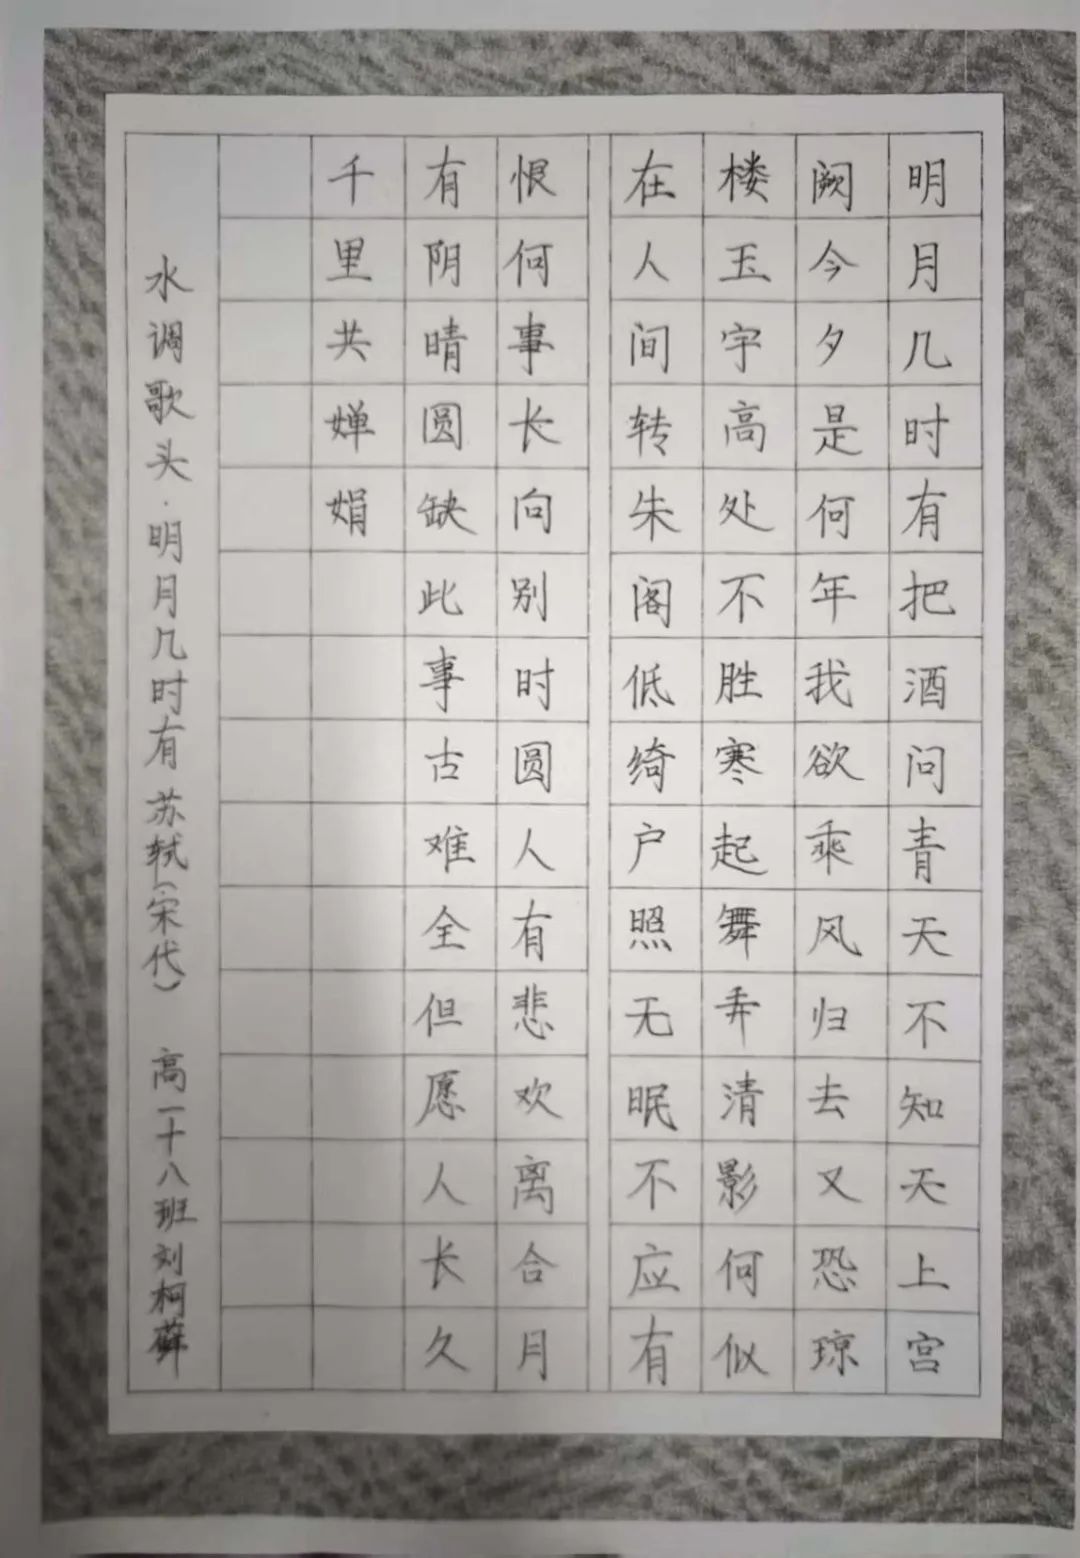 明月几时有把酒问青天不知天上宫
阙今夕是何年我欲乘风归去又恐琼
楼玉宇高处不胜寒起舞弄清影何似
在人间转朱阁低绮户照无眠不应有
恨何事长向别时圆人有悲欢离合月
有阴晴圆缺此事古难全但愿人长久
千里共婵娟
水调歌头·明月几时有 苏轼(宋代) 高一十八班刘柯